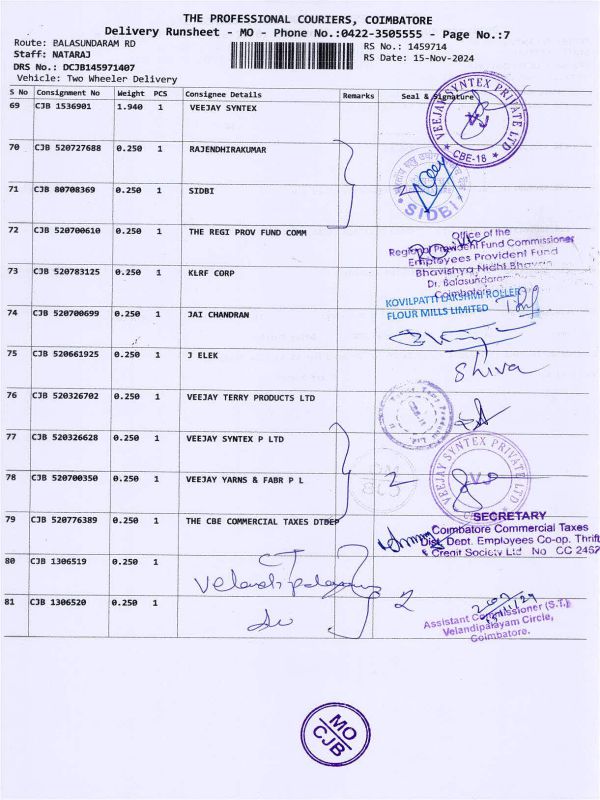 THE PROFESSIONAL COURIERS, COIMBATORE
Delivery Runsheet - MO - Phone No.:0422-3505555 - Page No.:7
Route: BALASUNDARAM RD
RS No.: 1459714
Staff: NATARAJ
RS Date: 15-Nov-2024
DRS No.: DCJB145971407
Vehicle: Two Wheeler Delivery
S No Consignment No Weight PCS Consignee Details Remarks Seal & Signature
69 CJB 1536901 1.940 1 VEEJAY SYNTEX
VEEJAY SYNTEX PRIVATE LTD
VSJ
CBE-18
70 CJB 520727688 0.250 1 RAJENDHIRAKUMAR
71 CJB 80708369 0.250 1 SIDBI
SIDBI
72 CJB 520700610 0.250 1 THE REGI PROV FUND COMM
Office of the
Regional Provident Fund Commissioner
Employees Provident Fund
Bhavishya Nidhi Bhavan
Dr. Balasundaram
Coimbatore
73 CJB 520783125 0.250 1 KLRF CORP
KOVILPATTI LAKSHMI ROLLER
FLOUR MILLS LIMITED
74 CJB 520700699 1 0.250 1 JAI CHANDRAN
75 CJB 520661925 0.250 1 J ELEK
Shiva
76 CJB 520326702 0.250 1 VEEJAY TERRY PRODUCTS LTD
77 CJB 520326628 0.250 1 VEEJAY SYNTEX P LTD
VEEJAY SYNTEX PRIVATE LTD
78 CJB 520700350 0.250 1 VEEJAY YARNS & FABR P L
2
79 CJB 520776389 0.250 1 THE CBE COMMERCIAL TAXES DTDEP
SECRETARY
Coimbatore Commercial Taxes
Dist. Dept. Employees Co-op. Thrift
& Credit Society Ltd No CC 2452
80 CJB 1306519 0.250 1
CT
Velandipalayam
81 CJB 1306520 0.250 1
2
Assistant Commissioner (S.T.)
Velandipalayam Circle,
Coimbatore.
MO
CJB